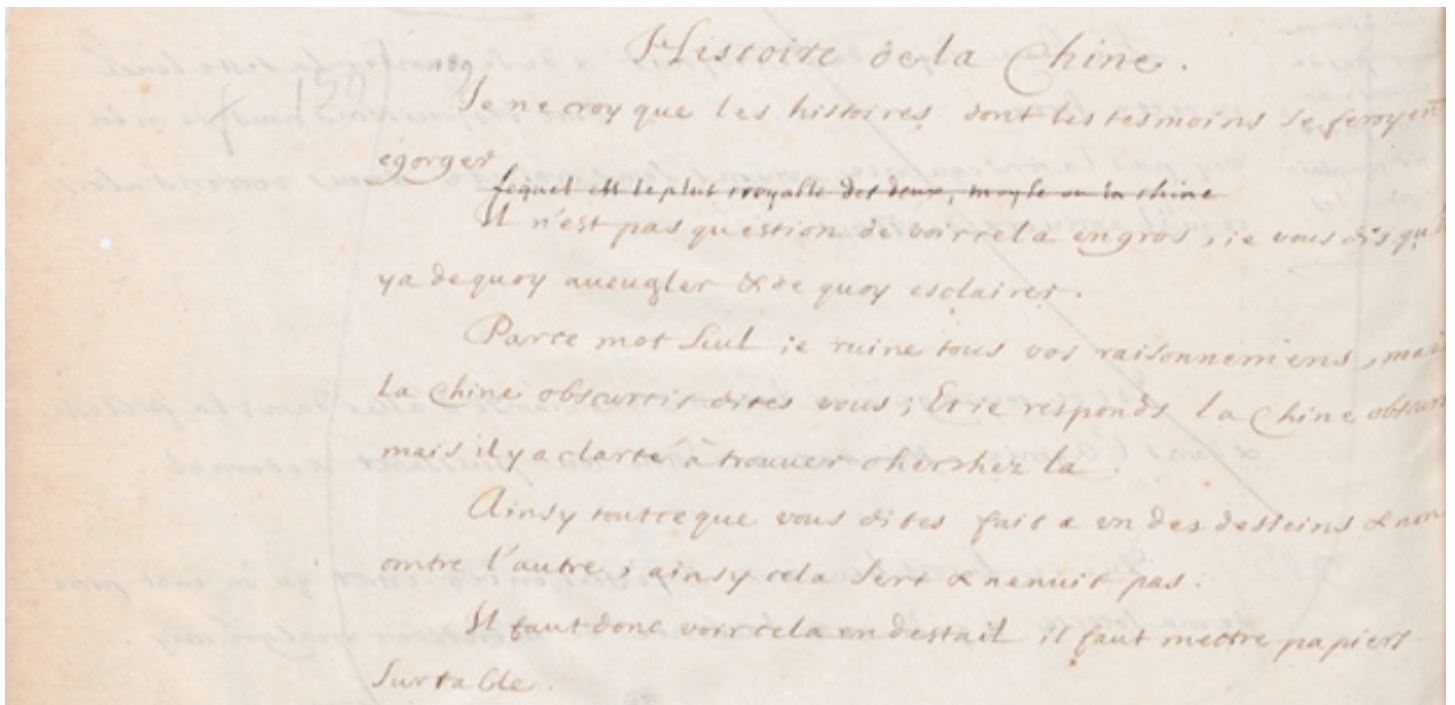 Histoire de la Chine.
Je ne croy que les histoires dont les tesmoins se feroyent
egorger
lequel est le plus croyable des deux, moyse ou la chine
Il n'est pas question de voir cela en gros, ie vous dis qu'il
y a de quoy aueugler & de quoy esclairer.
Par ce mot seul ie ruine tous vos raisonnemens, mais
La Chine obscurcit dites vous; Et ie responds La Chine obscurcit
mais il y a clarté à trouuer cherchez la.
Ainsy tout ce que vous dites fait a vn des desseins & non
contre l'autre, ainsy cela sert & ne nuit pas.
Il faut donc voir cela en destail il faut mettre papiers
sur table.